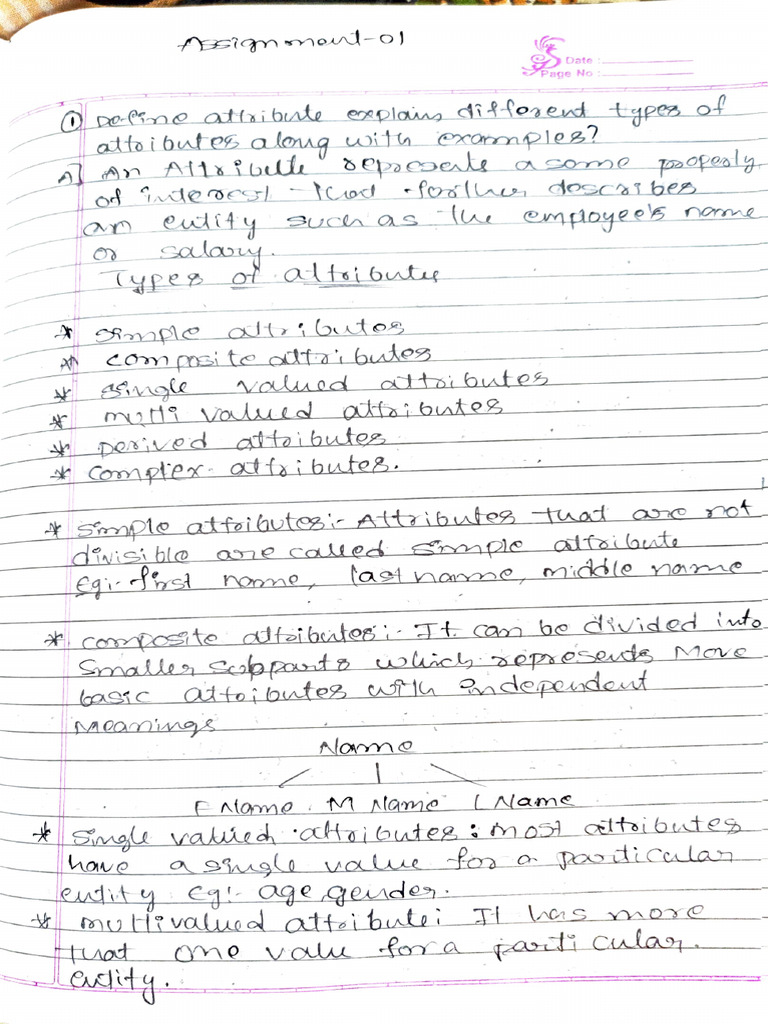 Assignment-01
Date :
Page No :
① Define attribute explains different types of
attributes along with examples?
A] An Attribute represents a some property
of interest that further describes
an entity such as the employee's name
or salary.
Types of attributes
* simple attributes
* composite attributes
* single valued attributes
* multi valued attributes
* Derived attributes
* complex attributes.
* simple attributes:- Attributes that are not
divisible are called simple attribute
Eg:- first name, last name, middle name
* composite attributes:- It can be divided into
smaller subparts which represents More
basic attributes with independent
Meanings
Name
F Name M Name L Name
* Single valued attributes: most attributes
have a single value for a particular
entity Eg:- age, gender.
* multivalued attribute: It has more
that one value for a particular.
entity.